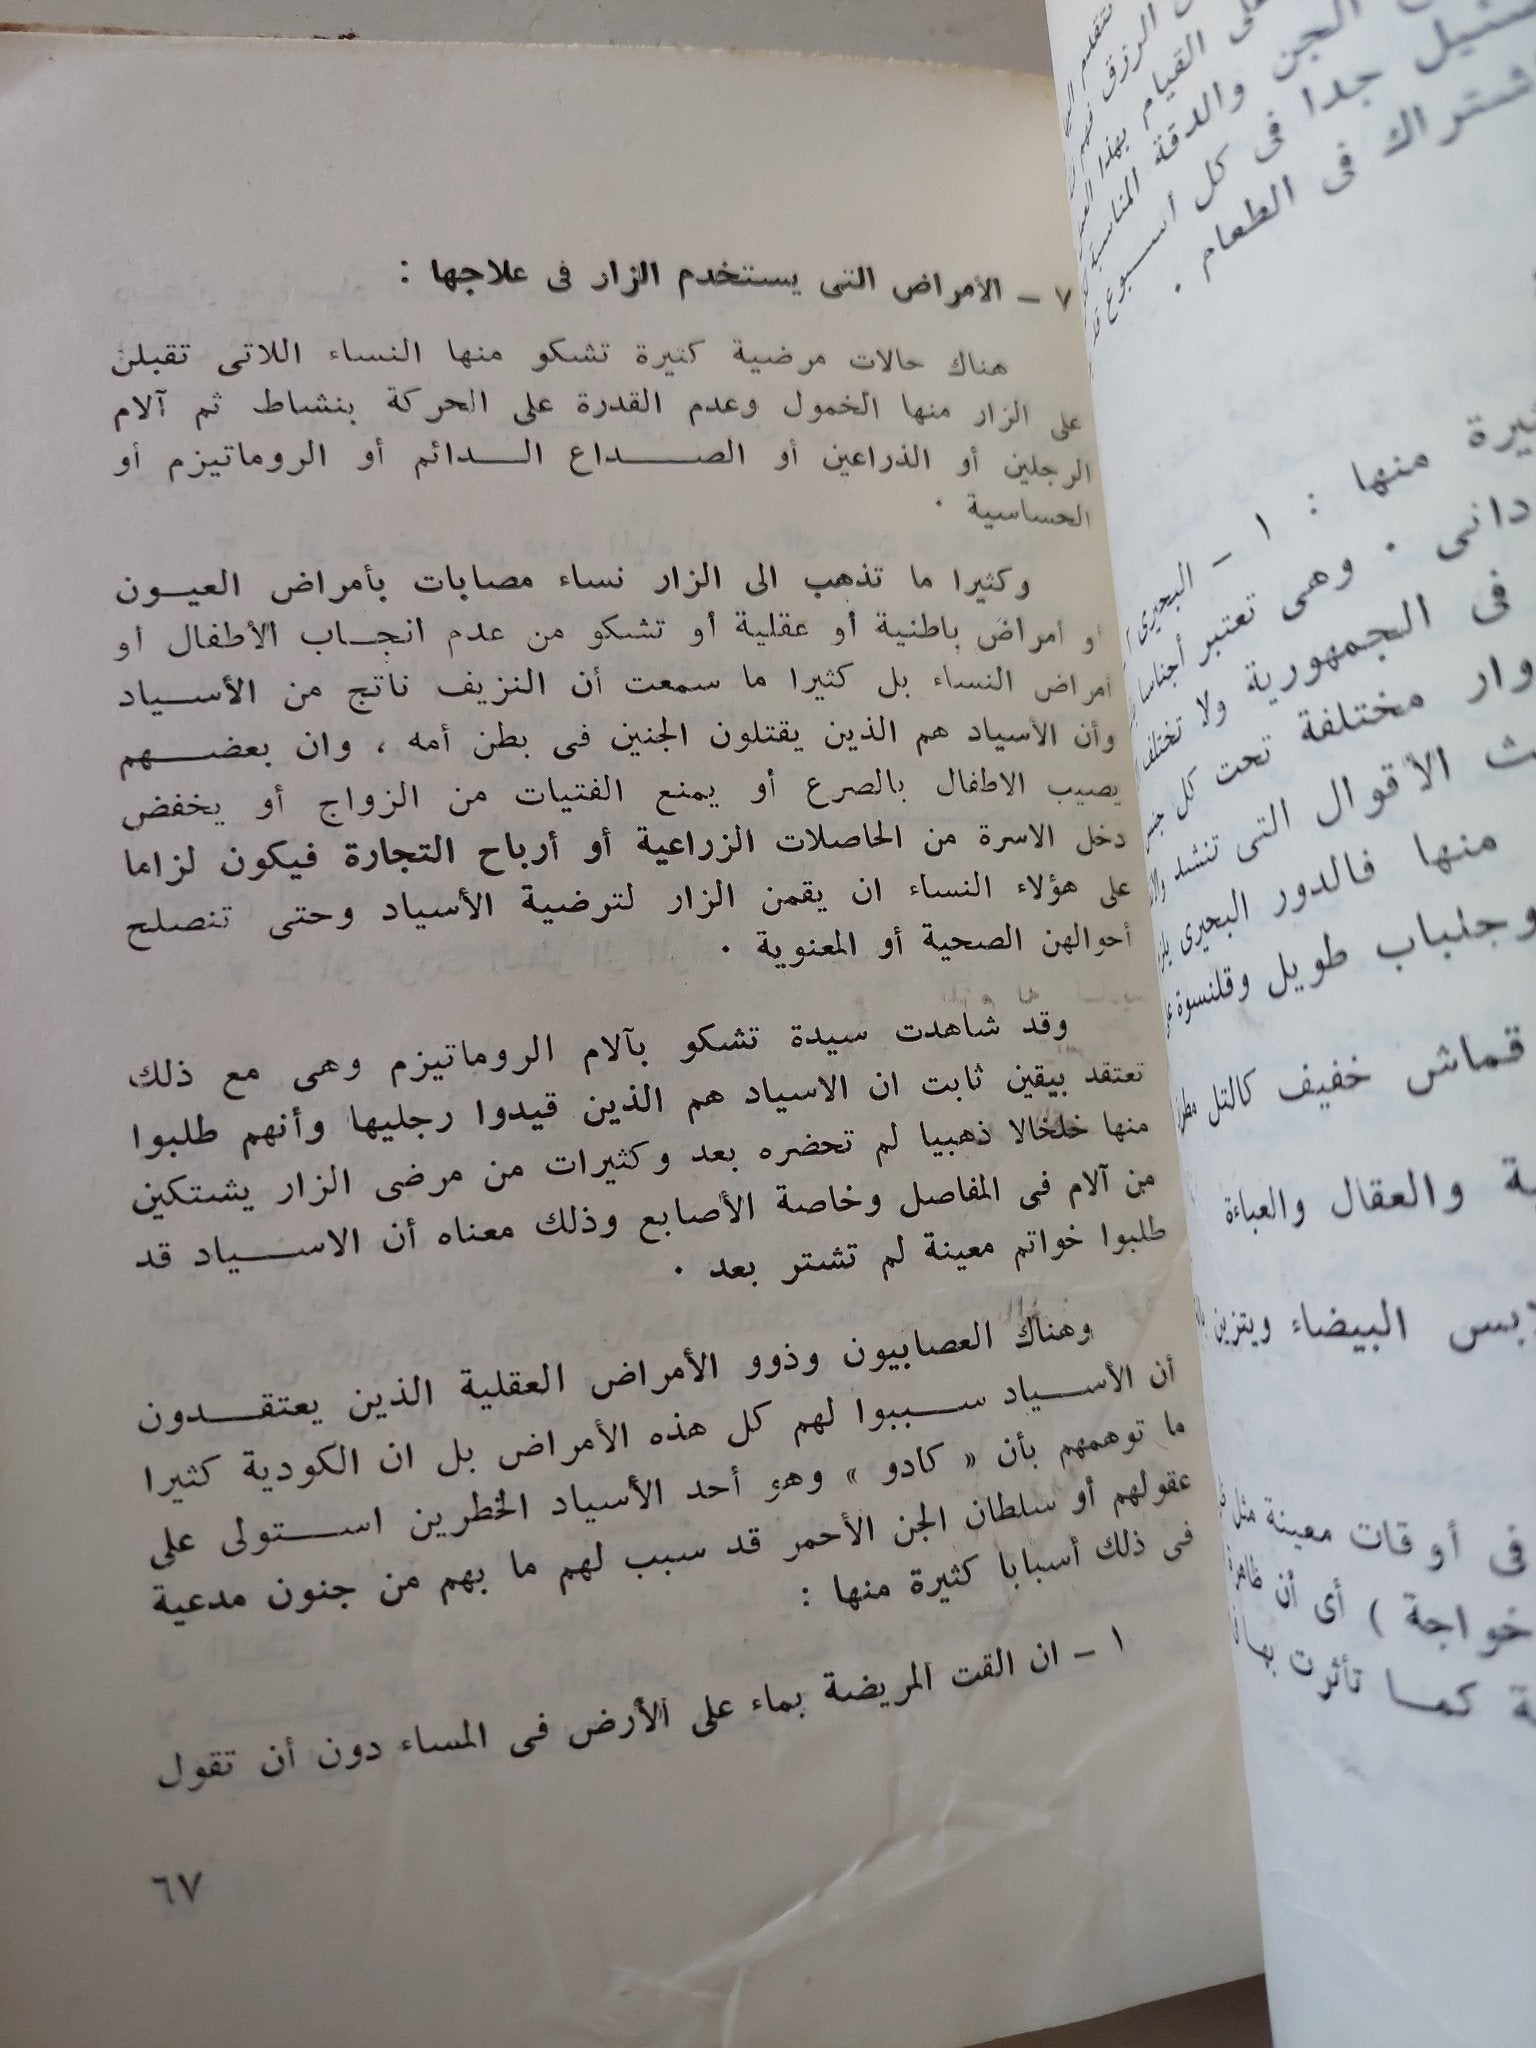 ٧ - الأمراض التى يستخدم الزار فى علاجها :
هناك حالات مرضية كثيرة تشكو منها النساء اللاتى تقبلن
على الزار منها الخمول وعدم القدرة على الحركة بنشاط ثم آلام
الرجلين أو الذراعين أو الصداع الدائم أو الروماتيزم أو
الحساسية .
وكثيرا ما تذهب الى الزار نساء مصابات بأمراض العيون
أو أمراض باطنية أو عقلية أو تشكو من عدم انجاب الأطفال أو
أمراض النساء بل كثيرا ما سمعت أن النزيف ناتج من الأسياد
وأن الأسياد هم الذين يقتلون الجنين فى بطن أمه ، وان بعضهم
يصيب الاطفال بالصرع أو يمنع الفتيات من الزواج أو يخفض
دخل الاسرة من الحاصلات الزراعية أو أرباح التجارة فيكون لزاما
على هؤلاء النساء ان يقمن الزار لترضية الأسياد وحتى تنصلح
أحوالهن الصحية أو المعنوية .
وقد شاهدت سيدة تشكو بآلام الروماتيزم وهى مع ذلك
تعتقد بيقين ثابت ان الاسياد هم الذين قيدوا رجليها وأنهم طلبوا
منها خلخالا ذهبيا لم تحضره بعد وكثيرات من مرضى الزار يشتكين
من آلام فى المفاصل وخاصة الأصابع وذلك معناه أن الاسياد قد
طلبوا خواتم معينة لم تشتر بعد .
وهناك العصابيون وذوو الأمراض العقلية الذين يعتقدون
أن الأسياد سببوا لهم كل هذه الأمراض بل ان الكودية كثيرا
ما توهمهم بأن « كادو » وهو أحد الأسياد الخطرين استولى على
عقولهم أو سلطان الجن الأحمر قد سبب لهم ما بهم من جنون مدعية
فى ذلك أسبابا كثيرة منها :
١ - ان القت المريضة بماء على الأرض فى المساء دون أن تقول
٦٧
الرزق
على القيام بهذا
الجن والدقة المناسبة
جدا فى كل أسبوع
فى الطعام .
منها : ١ - البحيرى
وهى تعتبر أجناسا
فى الجمهورية ولا تختلف
مختلفة تحت كل
الأقوال التى تنشد
منها فالدور البحيرى
وجلباب طويل وقلنسوة
قماش خفيف كالتل
والعقال والعباءة
البيضاء ويتزين
فى أوقات معينة مثل
خواجة ) أى أن ظاهرة
كما تأثرت